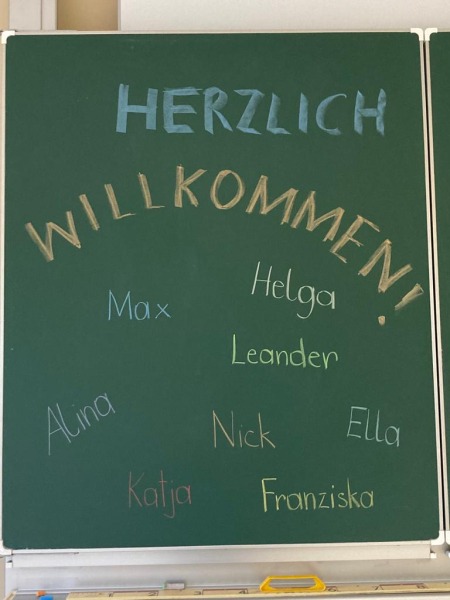 HERZLICH
WILLKOMMEN!
Helga
Max
Leander
Alina
Nick
Ella
Katja
Franziska